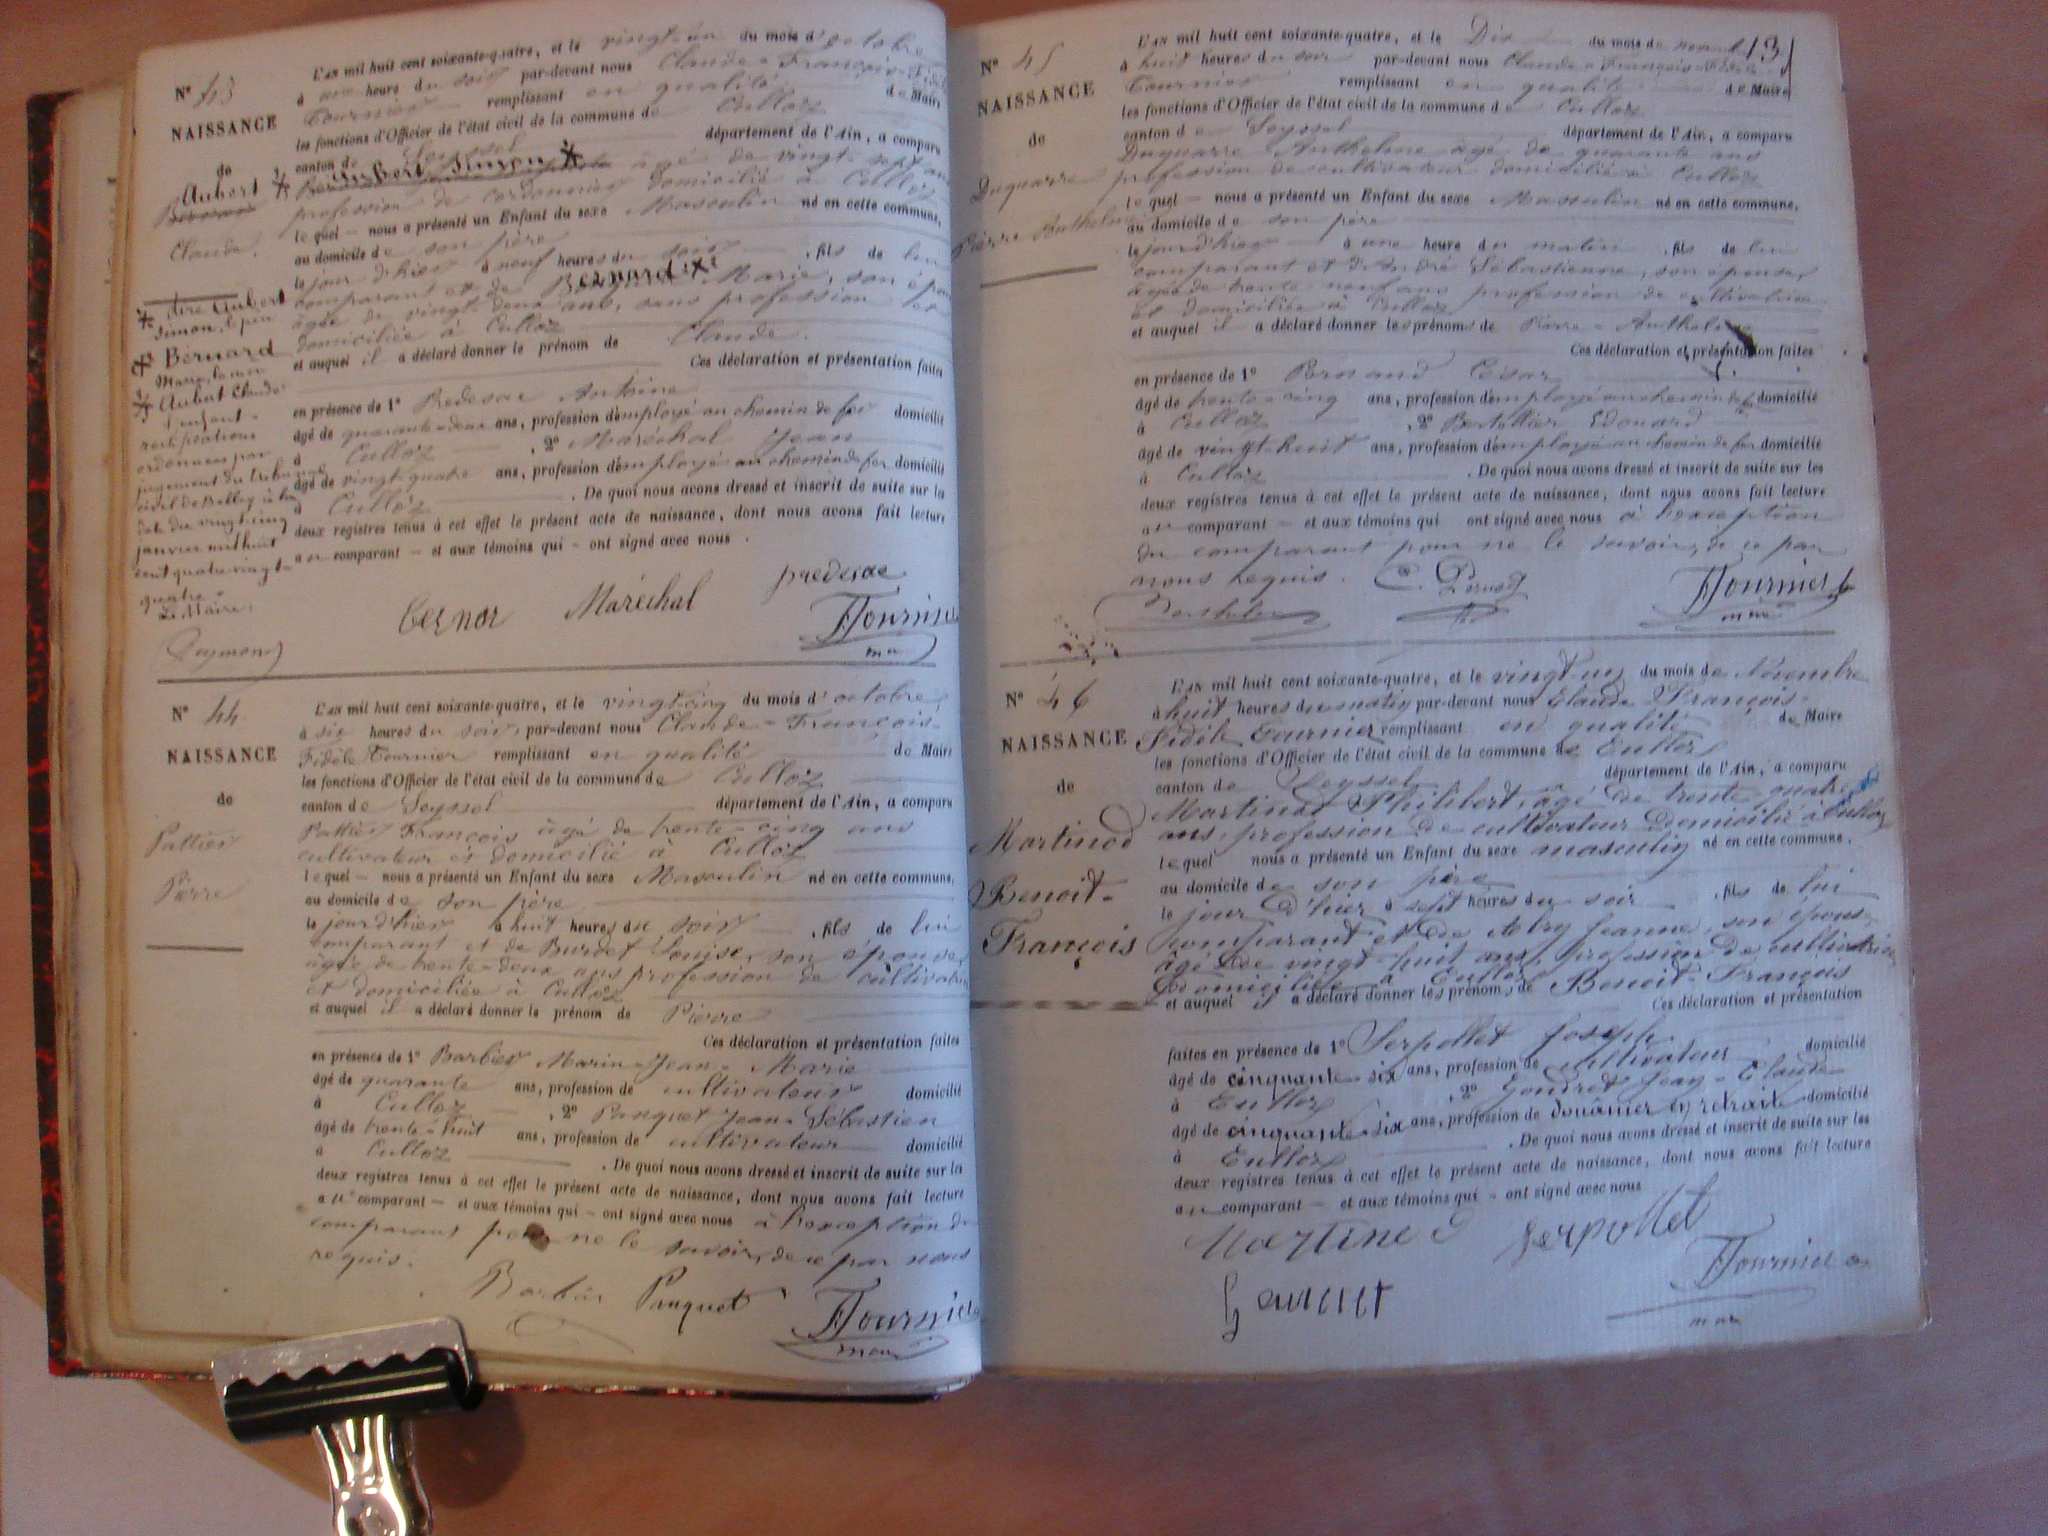 N° 43
NAISSANCE
de
Aubert
Claude.
* dire Aubert
Simon, le père
* Bernard
Marie, la mère
* Aubert Claude
l'enfant -
rectifications
ordonnées par
jugement du tribunal
civil de Belley à la
date du vingt cinq
janvier mil huit
cent quatre vingt-
quatre -
Le Maire,
L'AN mil huit cent soixante-quatre, et le vingt-un du mois d'octobre
à une heure du soir par-devant nous Claude-François-Fidèle
Tournier remplissant en qualité de Maire
les fonctions d'Officier de l'état civil de la commune de Culloz
canton de Seyssel département de l'Ain, a comparu
Aubert Simon * âgé de vingt-sept ans
profession de cordonnier domicilié à Culloz
lequel — nous a présenté un Enfant du sexe Masculin né en cette commune,
au domicile de son père
le jour d'hier à neuf heures du soir , fils de lui
comparant et de Bernard * Marie, son épouse
âgée de vingt-deux ans, sans profession et
domiciliée à Culloz
et auquel il a déclaré donner le prénom de Claude.
Ces déclaration et présentation faites
en présence de 1° Predesac Antoine
âgé de quarante-deux ans, profession d'employé au chemin de fer domicilié
à Culloz , 2° Maréchal Jean
âgé de vingt-quatre ans, profession d'employé au chemin de fer domicilié
à Culloz . De quoi nous avons dressé et inscrit de suite sur la
deux registres tenus à cet effet le présent acte de naissance, dont nous avons fait lecture
au comparant — et aux témoins qui - ont signé avec nous .
bernar Maréchal predesac
Tournier
N° 44
NAISSANCE
de
Pattier
Pierre
L'AN mil huit cent soixante-quatre, et le vingt-cinq du mois d'octobre
à six heures du soir, par-devant nous Claude-François-
Fidèle Tournier remplissant en qualité de Maire
les fonctions d'Officier de l'état civil de la commune de Culloz
canton de Seyssel département de l'Ain, a comparu
Pattier François âgé de trente-cinq ans
cultivateur et domicilié à Culloz
lequel — nous a présenté un Enfant du sexe Masculin né en cette commune,
au domicile de son père
le jour d'hier à huit heures du soir , fils de lui
comparant et de Burdet Louise, son épouse,
âgée de trente-deux ans profession de cultivatrice
et domiciliée à Culloz
et auquel il a déclaré donner le prénom de Pierre
Ces déclaration et présentation faites
en présence de 1° Barbier Marin-Jean-Marie
âgé de quarante ans, profession de cultivateur domicilié
à Culloz , 2° Panquet Jean-Sébastien
âgé de trente-huit ans, profession de cultivateur domicilié
à Culloz . De quoi nous avons dressé et inscrit de suite sur la
deux registres tenus à cet effet le présent acte de naissance, dont nous avons fait lecture
au comparant — et aux témoins qui - ont signé avec nous à l'exception du
comparant pour ne le savoir, de ce par nous
requis.
Barbier Panquet Tournier
13
N° 45
NAISSANCE
de
Duquarre
Pierre Anthelme
L'AN mil huit cent soixante-quatre, et le Dix du mois de novembre
à huit heures du soir par-devant nous Claude-François-Fidèle
Tournier remplissant en qualité de Maire
les fonctions d'Officier de l'état civil de la commune de Culloz
canton de Seyssel département de l'Ain, a comparu
Duquarre Anthelme âgé de quarante ans
profession de cultivateur domicilié à Culloz
lequel — nous a présenté un Enfant du sexe Masculin né en cette commune,
au domicile de son père
le jour d'hier à une heure du matin , fils de lui
comparant et d'André Sébastienne, son épouse,
âgée de trente neuf ans profession de cultivatrice
et domiciliée à Culloz
et auquel il a déclaré donner les prénoms de Pierre-Anthelme
Ces déclaration et présentation faites
en présence de 1° Pernaud César
âgé de trente-cinq ans, profession d'employé au chemin de fer domicilié
à Culloz , 2° Bertollier Edouard
âgé de vingt-huit ans, profession d'employé au chemin de fer domicilié
à Culloz . De quoi nous avons dressé et inscrit de suite sur les
deux registres tenus à cet effet le présent acte de naissance, dont nous avons fait lecture
au comparant — et aux témoins qui ont signé avec nous à l'exception
du comparant pour ne le savoir, de ce par
nous requis.
Tournier
N° 46
NAISSANCE
de
Martinod
Benoit-
François
L'AN mil huit cent soixante-quatre, et le vingt-un du mois de Novembre
à huit heures du matin par-devant nous Claude François-
Fidèle Tournier remplissant en qualité de Maire
les fonctions d'Officier de l'état civil de la commune de Culloz
canton de Seyssel département de l'Ain, a comparu
Martinod Philibert, âgé de trente quatre
ans, profession de cultivateur domicilié à Culloz
lequel nous a présenté un Enfant du sexe masculin né en cette commune,
au domicile de son père
le jour d'hier à sept heures du soir , fils de lui
comparant et de Abry Jeanne, son épouse,
âgée de vingt-huit ans, profession de cultivatrice
domiciliée à Culloz
et auquel il a déclaré donner les prénoms de Benoit-François
Ces déclaration et présentation
faites en présence de 1° Serpollet Joseph
âgé de cinquante-six ans, profession de cultivateur domicilié
à Culloz , 2° Gondret Jean-Claude
âgé de cinquante-six ans, profession de douanier en retraite domicilié
à Culloz . De quoi nous avons dressé et inscrit de suite sur les
deux registres tenus à cet effet le présent acte de naissance, dont nous avons fait lecture
au comparant — et aux témoins qui - ont signé avec nous
Martinod Serpollet
Tournier